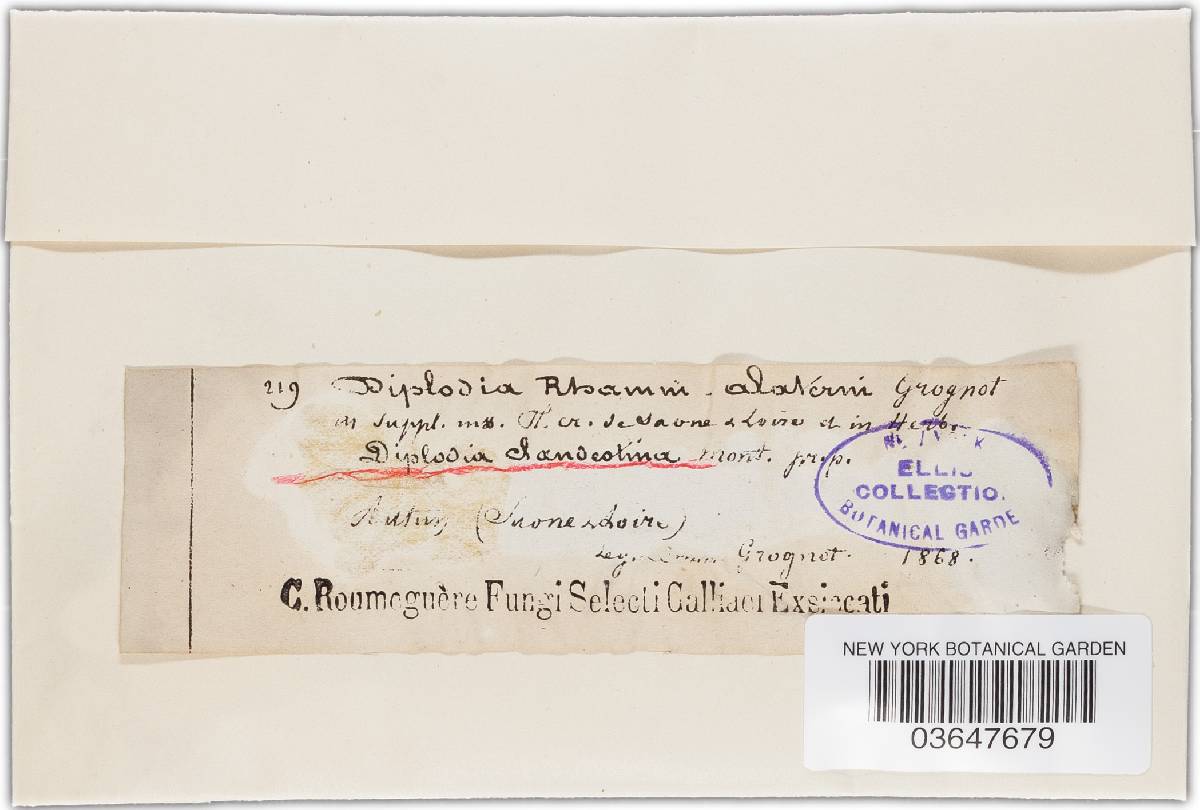 219 Diplodia Rhamni-alaterni Grognot
in Suppl. mss. Pl. cr. de Saone & Loire et in Herb.
Diplodia clandestina mont. p.p.
Autun (Saone & Loire)
Grognot. 1868.
C. Roumeguère Fungi Selecti Galliaei Exsiccati
ELLIS
COLLECTIO
BOTANICAL GARDE
NEW YORK BOTANICAL GARDEN
03647679